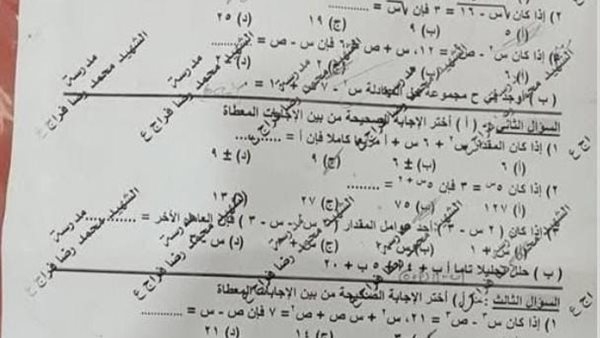 ٢) إذا كان √س - ١٦ = ٣ فإن √س = ..........
(أ) ٥ (ب) ٩ (ج) ١٩ (د) ٢٥
إذا كان س٢ - ص٢ = ١٢، س + ص = ٦ فإن س - ص = ..........
(أ) ٦ ٢ (د)
(ب) أوجد في ح مجموعة حل المعادلة س٢ - ٧ + ١٠ =
السؤال الثاني: (أ) أختر الإجابة الصحيحة من بين الإجابات المعطاة
١) إذا كان المقدار س٢ + ٦ س + أ مربعا كاملا فإن أ = ..........
(أ) ٦ (ب) ± ٦ (ج) ٩ (د) ± ٩
٢) إذا كان ٥س = ٣ فإن ٥س + ٢ = ........
(أ) ١٢٧ (ب) ٧٥ (ج) ٢٧ (د) ١٣
إذا كان (٢ س - ٣) أحد عوامل المقدار س - ٣) فإن العامل الآخر = ..........
س + ١ (ب) س (ج) (د) س
(ب) حلل تحليلا تاما أ ب + ٤ + ٥ ب + ٢٠
السؤال الثالث: أختر الإجابة الصحيحة من بين الإجابات المعطاة
١) إذا كان س٣ - ص٣ = ٢١، س٢ + س ص + ص٢ = ٧ فإن س - ص = ..........
(ج) ١٤ (د) ٢١
مدرسة
الشهيد محمد رضا فراج ع